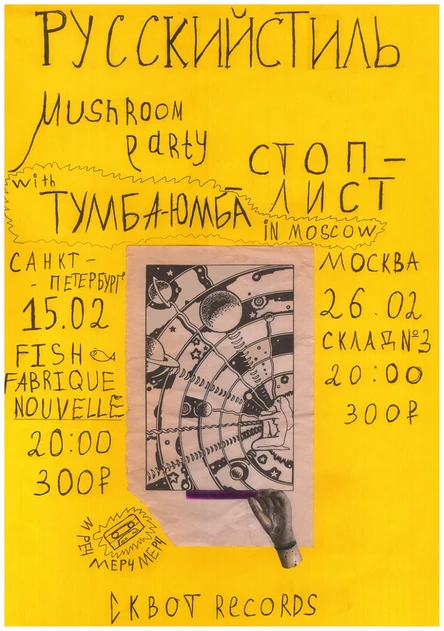 РУССКИЙСТИЛЬ
Mushroom
party
СТОП-
ЛИСТ
with
ТУМБА-ЮМБА
IN MOSCOW
САНКТ-
-ПЕТЕРБУРГ
15.02
FISH
FABRIQUE
NOUVELLE
20:00
300₽
МОСКВА
26.02
СКЛАД №3
20:00
300₽
МЕРЧ МЕРЧ МЕРЧ
СКВОТ RECORDS